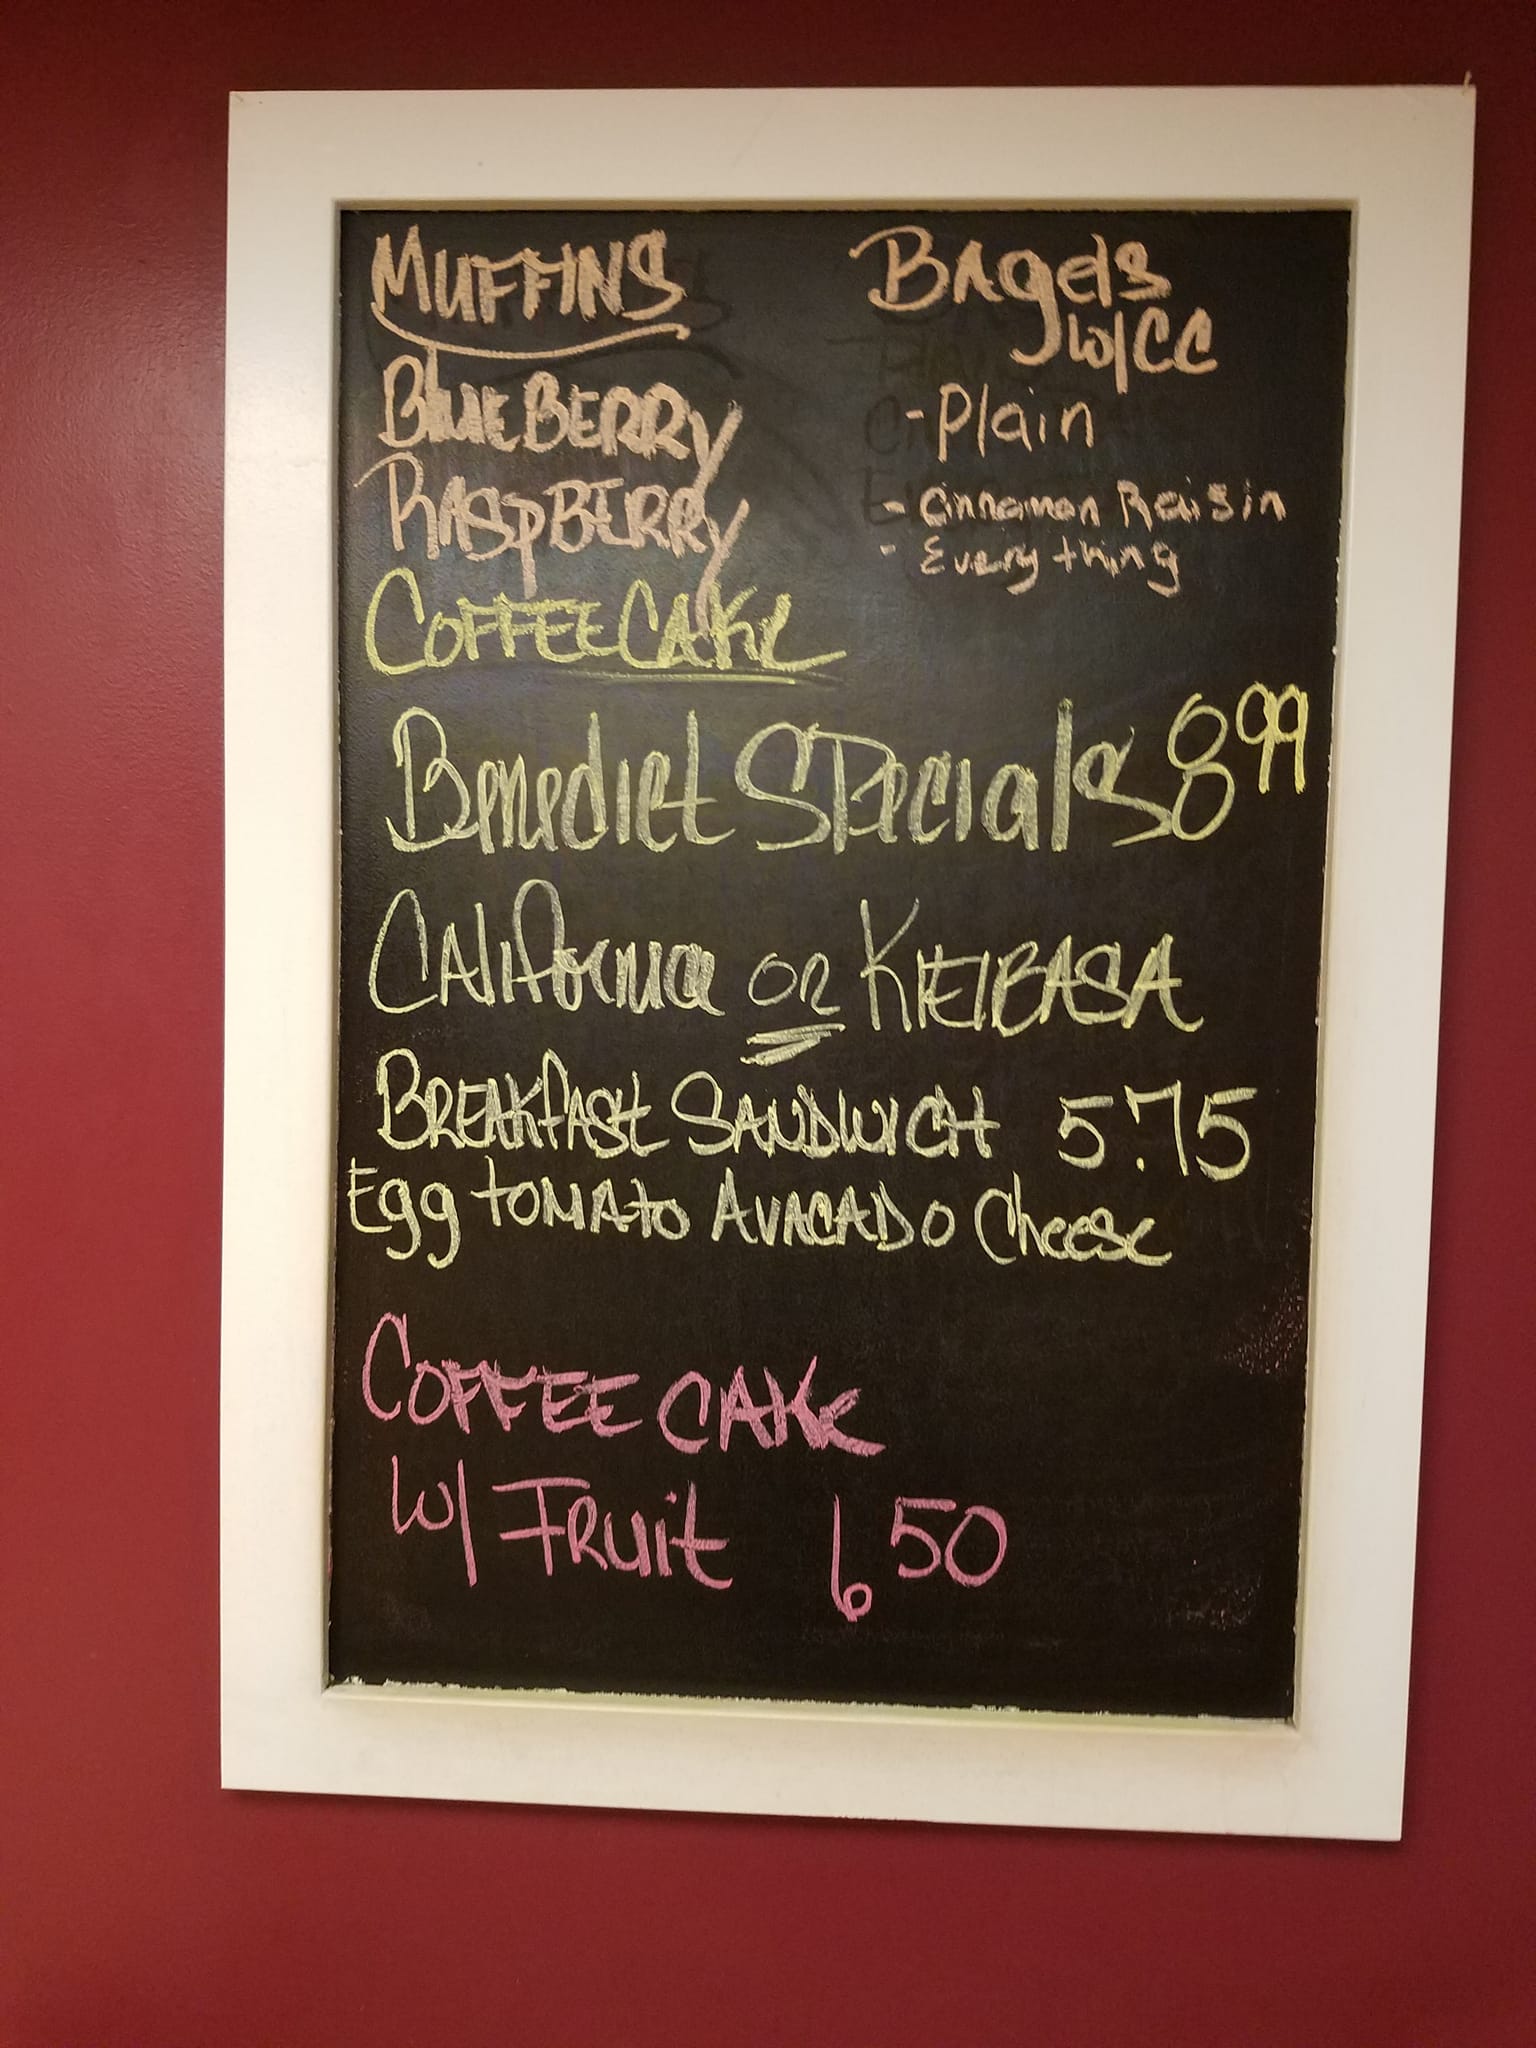 MUFFINS
BlUEBERRy
RASpBERRy
COFFEE CAKe
Bagels
w/CC
-Plain
- Cinnamon Raisin
- Everything
Benedict Specials 8 99
CAlifornia OR KIELBASA
BREAKfAST SANDWICH 5.75
Egg TOMATO AVACADO Cheese
COFFEE CAKe
W/ FRuit 6 50